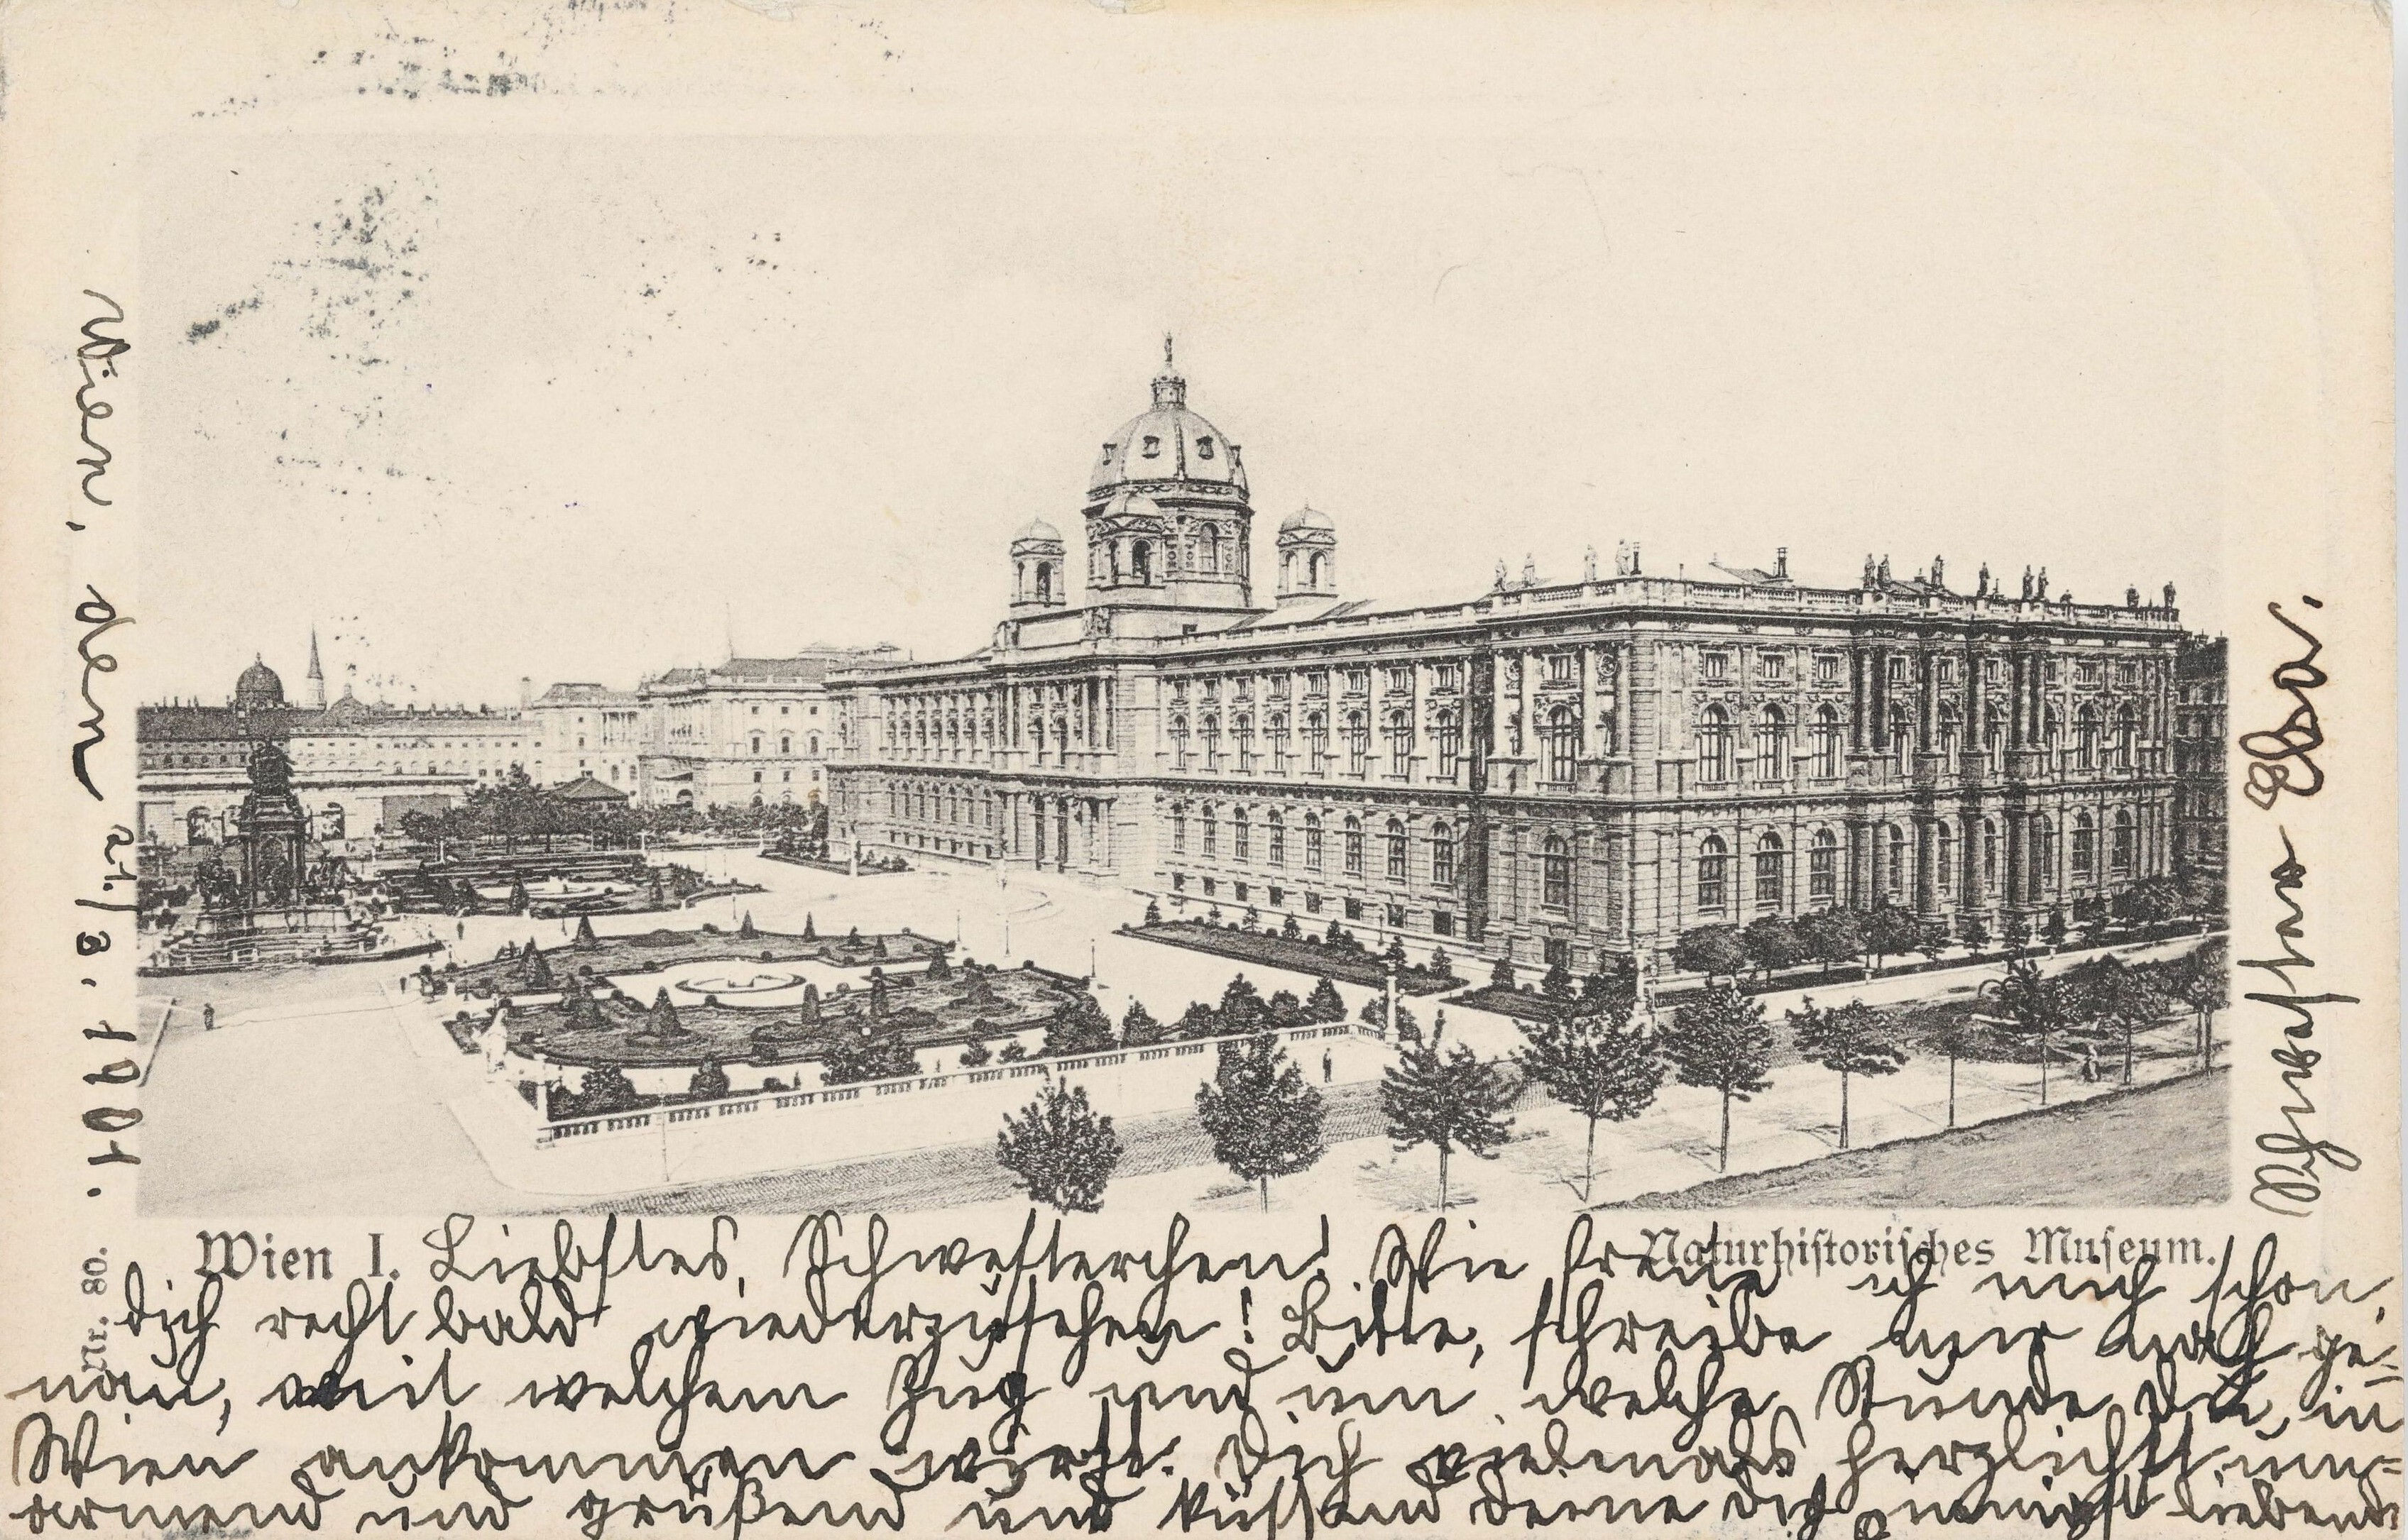 Wien, den 21./3. 1901.
Nr. 80.
Wien I.
Naturhistorisches Museum.
Liebstes, Schwesterchen! Wie freue ich mich schon,
dich recht bald wiederzusehen! Bitte, schreibe mir noch ge=
nau, mit welchem Zug und um welche Stunde du in
Wien ankommen wirst. Dich vielmals herzlichst um=
armend und grüßend und küssend deine dich innigst liebende
Schwester Elsa.